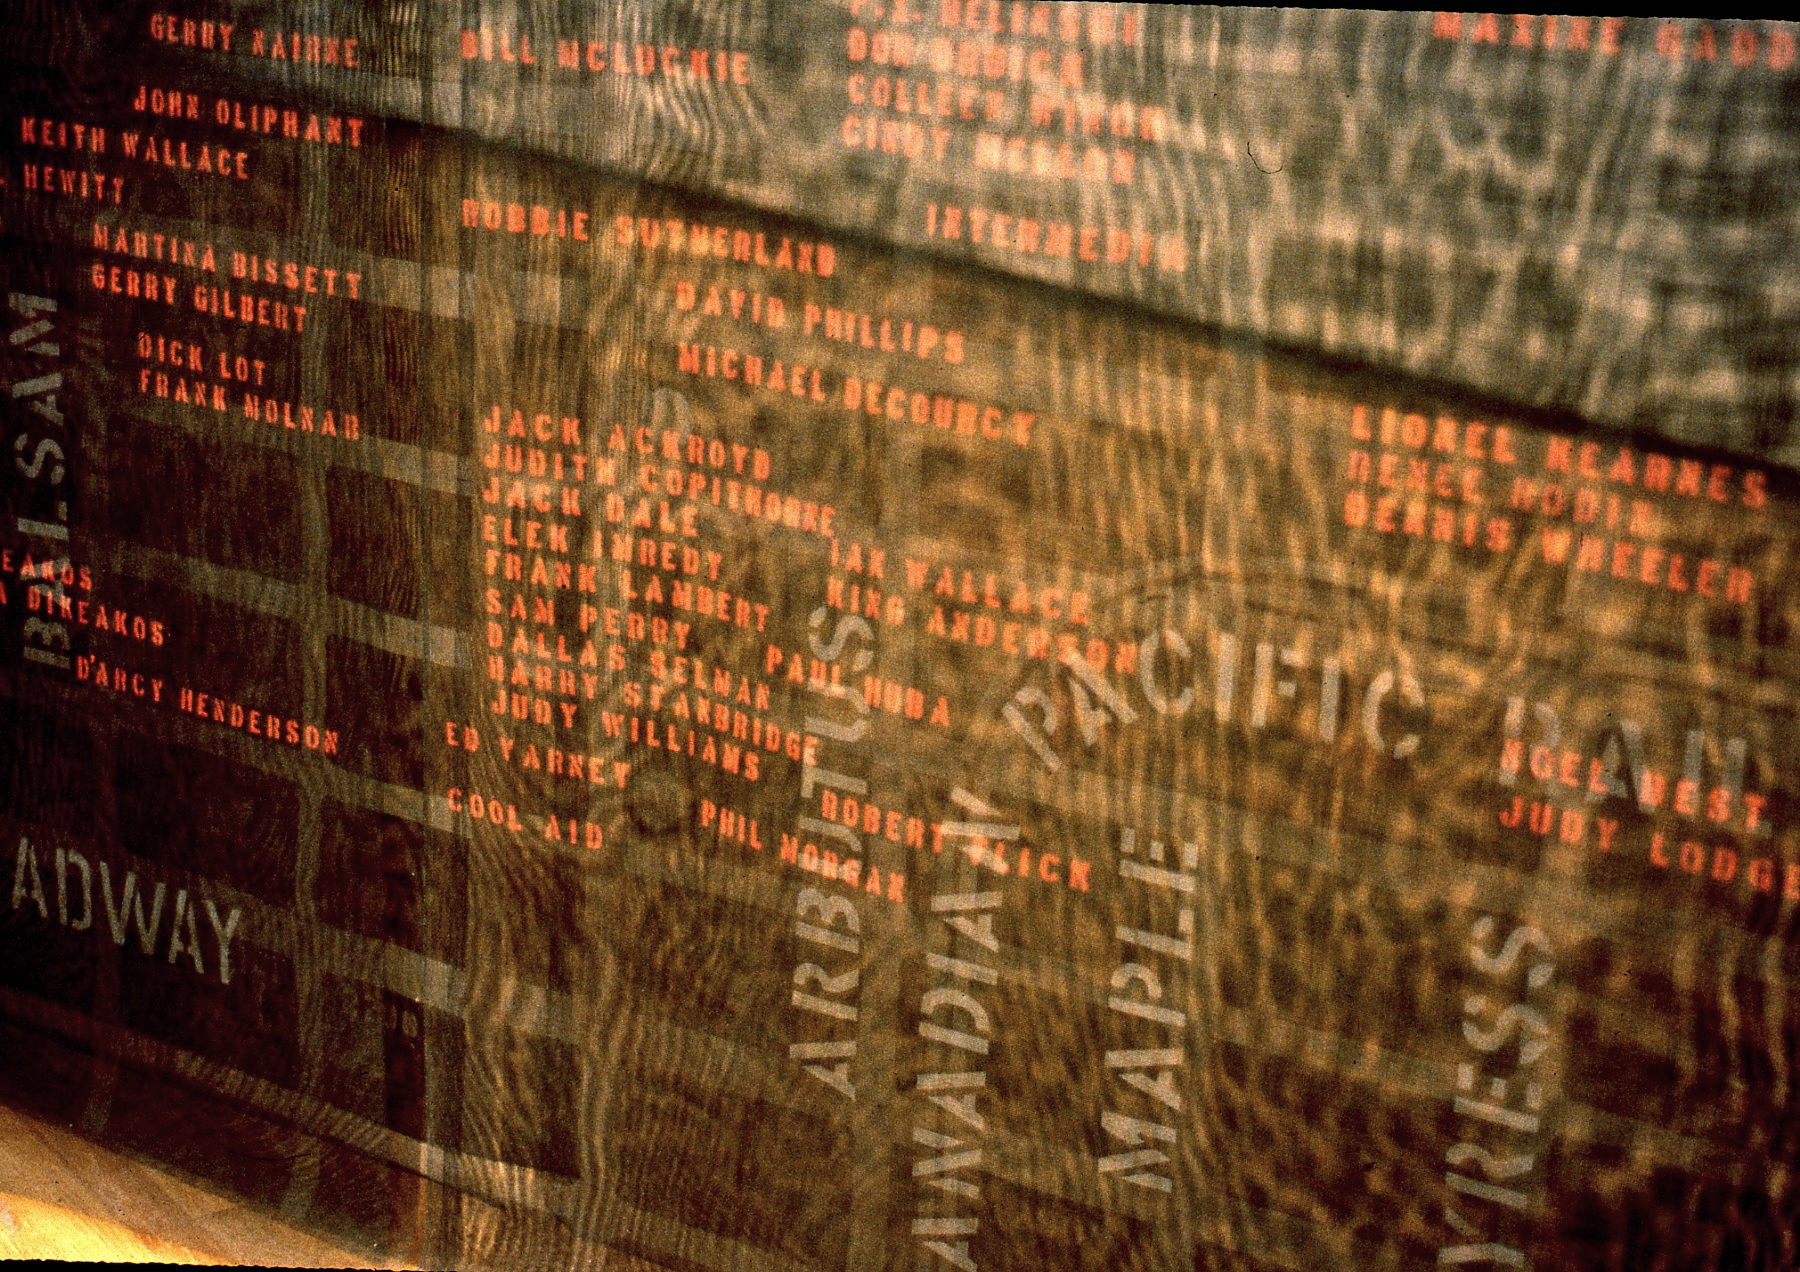 GERRY NAIRNE
BILL MCLUCKIE
MAXINE GADD
JOHN OLIPHANT
KEITH WALLACE
HEWITT
CINDY
COLLEEN
ROBBIE SUTHERLAND
INTERMEDIA
MARTINA BISSETT
GERRY GILBERT
DAVID PHILLIPS
DICK LOT
FRANK MOLNAR
MICHAEL DECOURCY
JACK ACKROYD
JUDITH COPITHORNE
JACK DALE
ELEK IMREDY
FRANK LAMBERT
SAM PERRY
DALLAS SELMAN
HARRY STANBRIDGE
JUDY WILLIAMS
LIONEL KEARNES
DENNIS WHEELER
IAN WALLACE
KING ANDERSON
PAUL HUBA
EAKOS
DIKEAKOS
D'ARCY HENDERSON
ED VARNEY
COOL AID
PHIL MORGAN
ROBERT
NOEL WEST
JUDY LODGE
BALSAM
ADWAY
ARBUTUS
PACIFIC
MAPLE
YRESS